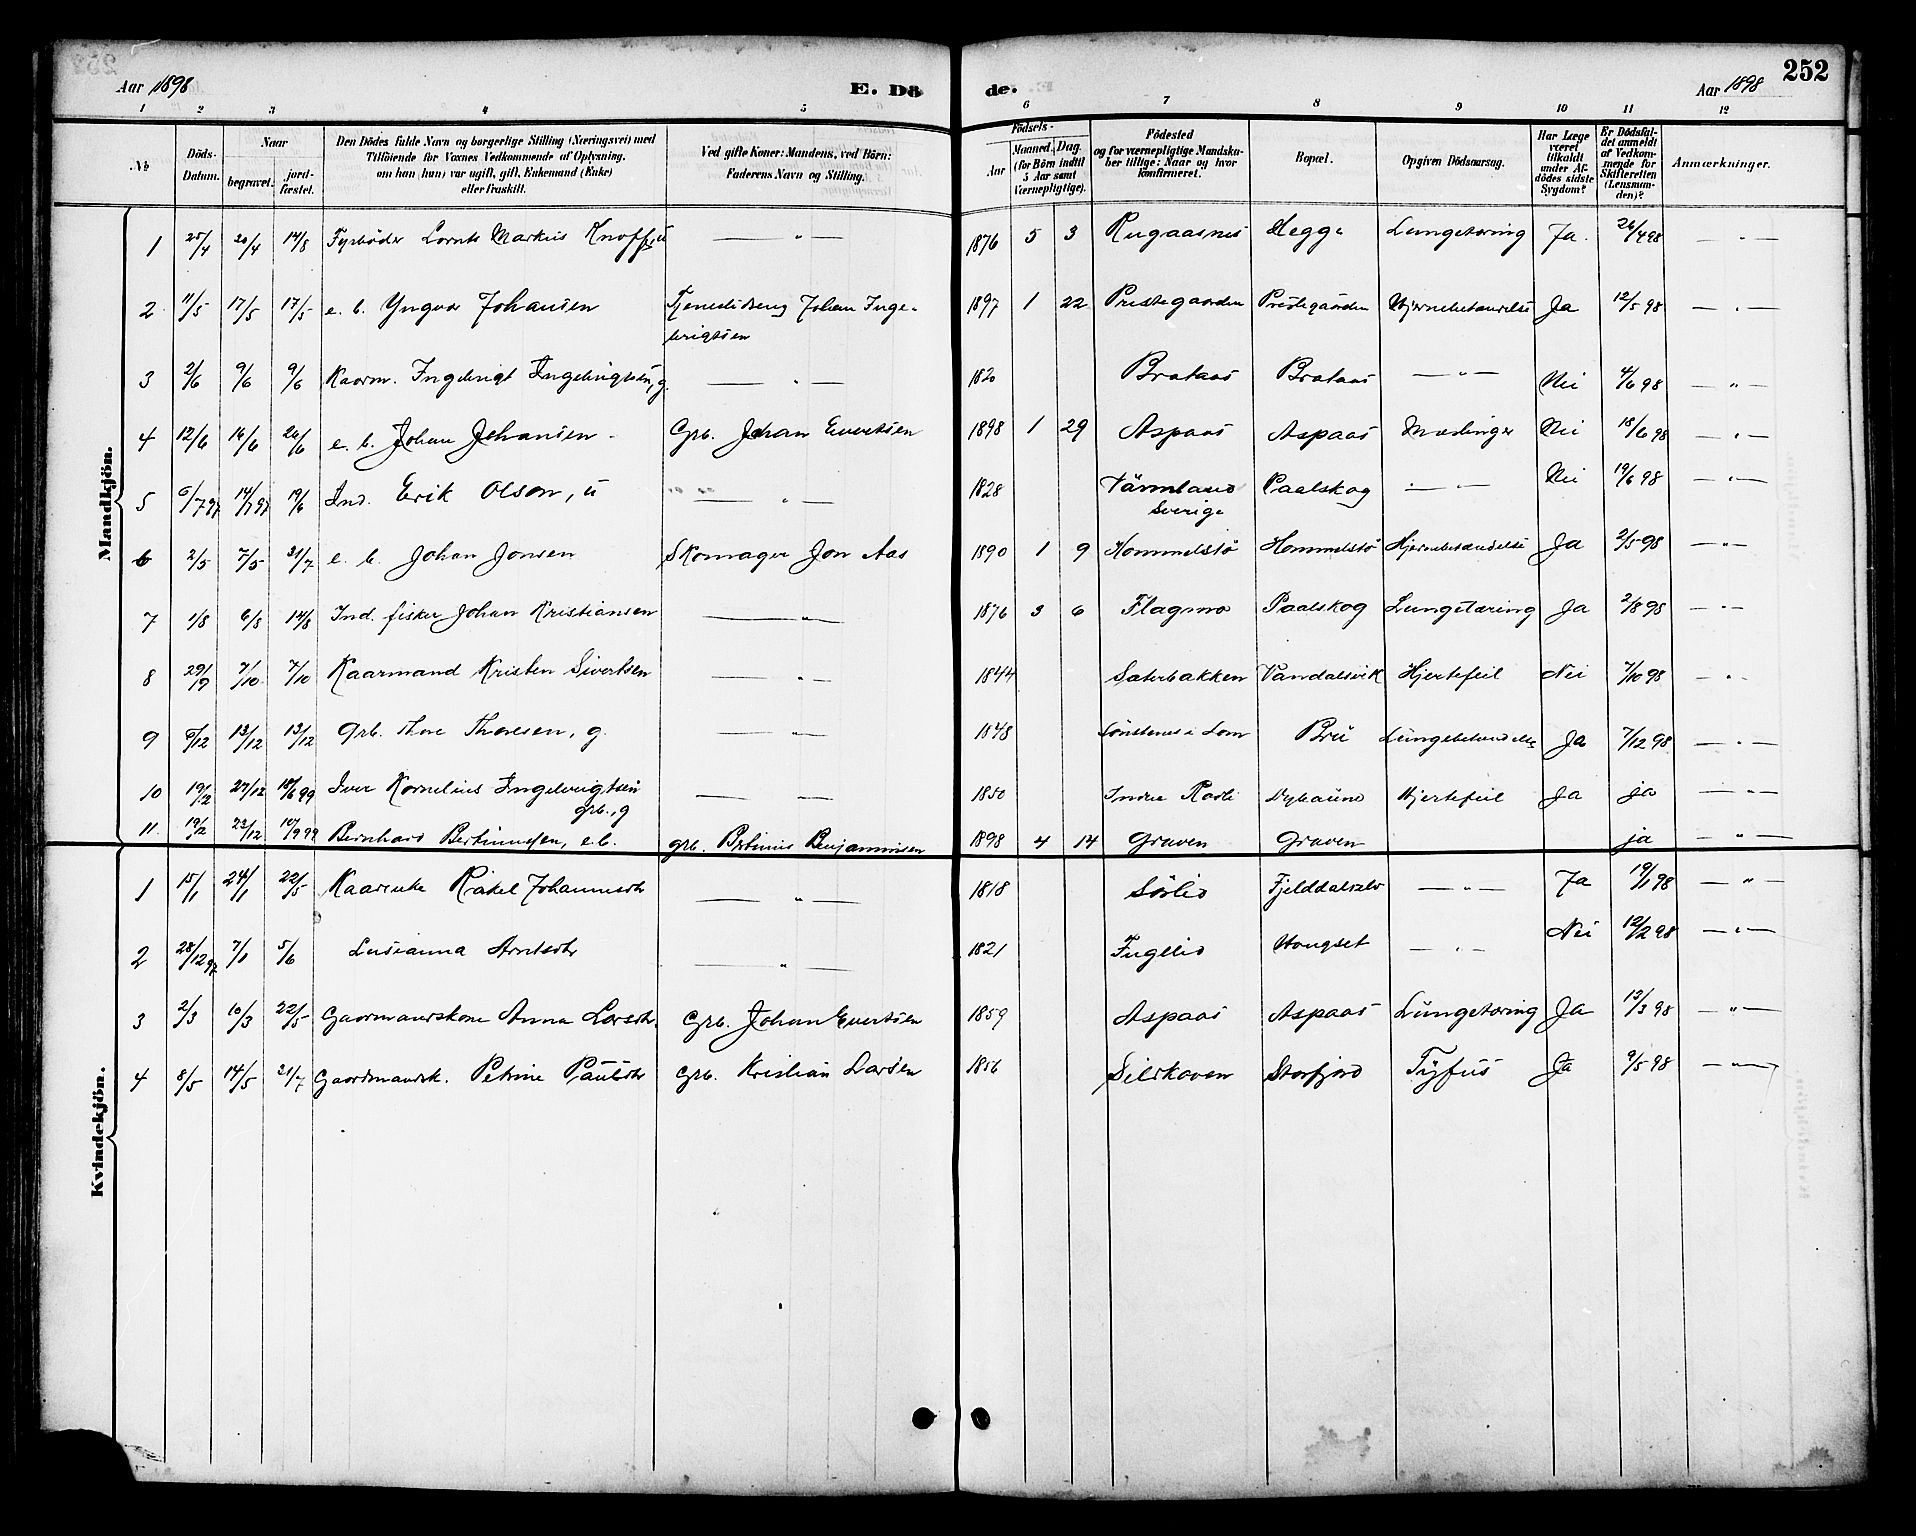 Aar 1898 E. Dö de. Aar 1898 252
1 2 3 4 5 6 7 8 9 10 11 12
No. Döds-Datum. Naar begravet. jord-fæstet. Den Dödes fulde Navn og borgerlige Stilling (Næringsvei) med Tilföiende for Voxnes Vedkommende af Oplysning, om han (hun) var ugift, gift, Enkemand (Enke) eller fraskilt. Ved gifte Koner: Mandens, ved Börn: Faderens Navn og Stilling. Födsels- Aar Maaned. Dag. (for Börn indtil 5 Aar samt Værnepligtige). Födested og for værnepligtige Mandskaber tillige: Naar og hvor konfirmeret. Bopæl. Opgiven Dödsaarsag. Har Læge været tilkaldt under Afdödes sidste Sygdom? Er Dödsfaldet anmeldt af Vedkommende for Skifteretten (Lensmanden)? Anmærkninger.
Mandkjön.
1 25/4 14/8 Fyrböder Lornts Markus Knoff, ü — " — 1876 5 3 Rugaasnes Hegge Lungetæring Ja. 26/4 98 — " —
2 11/5 17/5 17/5 e. b. Yngvar Johansen Tjenestdreng Johan Inge-
brigtsen 1897 1 22 Prestegaarden Prestegaarden Hjernebetændelse Ja 12/5 98 — " —
3 2/6 9/6 9/6 Kaarm. Ingebrigt Ingebrigtsen, g. — " — 1820 Brataas Brataas — " — Nei 4/6 98 — " —
4 12/6 16/6 26/6 e. b. Johan Johansen Grb. Johan Evertsen 1898 1 29 Aspaas Aspaas Mæslinger Nei 18/6 98 — " —
5 6/7 97 14/7 97 19/6 Ind. Erik Olson, ü — " — 1828 Värmland
Sverige Paalskog — " — Nei 19/6 98 — " —
6 2/5 7/5 21/7 e. b. Johan Jonsen Skomager Jon Aas 1890 1 9 Hommelstö Hommelstö Hjernebetændelse Ja 2/5 98 — " —
7 1/8 6/8 14/8 Ind. fisker Johan Kristiansen — " — 1876 3 6 Flagmo Paalskog Lungetæring Ja 2/8 98 — " —
8 29/9 7/10 7/10 Kaarmand Kristen Sivertsen — " — 1844 Sæterbakken Vandalsvik Hjertefeil Nei 7/10 98 — " —
9 5/12 13/12 13/12 Grb. Thore Thoresen, g. — " — 1848 i Lom Brü Lüngebetændelse Ja 7/12 98 — " —
10 19/12 27/12 18/6 99 Iver Kornelius Ingebrigtsen
grb., g — — 1850 Indre Hjertefeil Ja ja — " —
11. 19/12 23/12 10/9 99 Bernhard Bertinussen, e.b. grb. Bertinius Benjaminsen 1898 4 14 Graven Graven ja — " —
Kvindekjön.
1 15/1 24/1 22/5 Kaarenke Rakel Johannesdtr — " — 1818 Sörlid Fjelddalselv — " — Ja 19/1 98 — " —
2 28/12 97 7/1 5/6 Lusianna Arntsdtr — " — 1821 Fugllid Hongset — " — Nei 12/2 98 — " —
3 2/3 10/3 22/5 Gaarmandskone Anna Larsdtr. Grb. Johan Evertsen 1859 Aspaas Aspaas Lüngetæring Ja 13/3 98 — " —
4 8/5 14/5 21/7 Gaardmandsk. Petrine Paulsdtr Grb. Kristian Larsen 1856 Sildkaven Storfjord Tyfus Ja 9/5 98 — " —